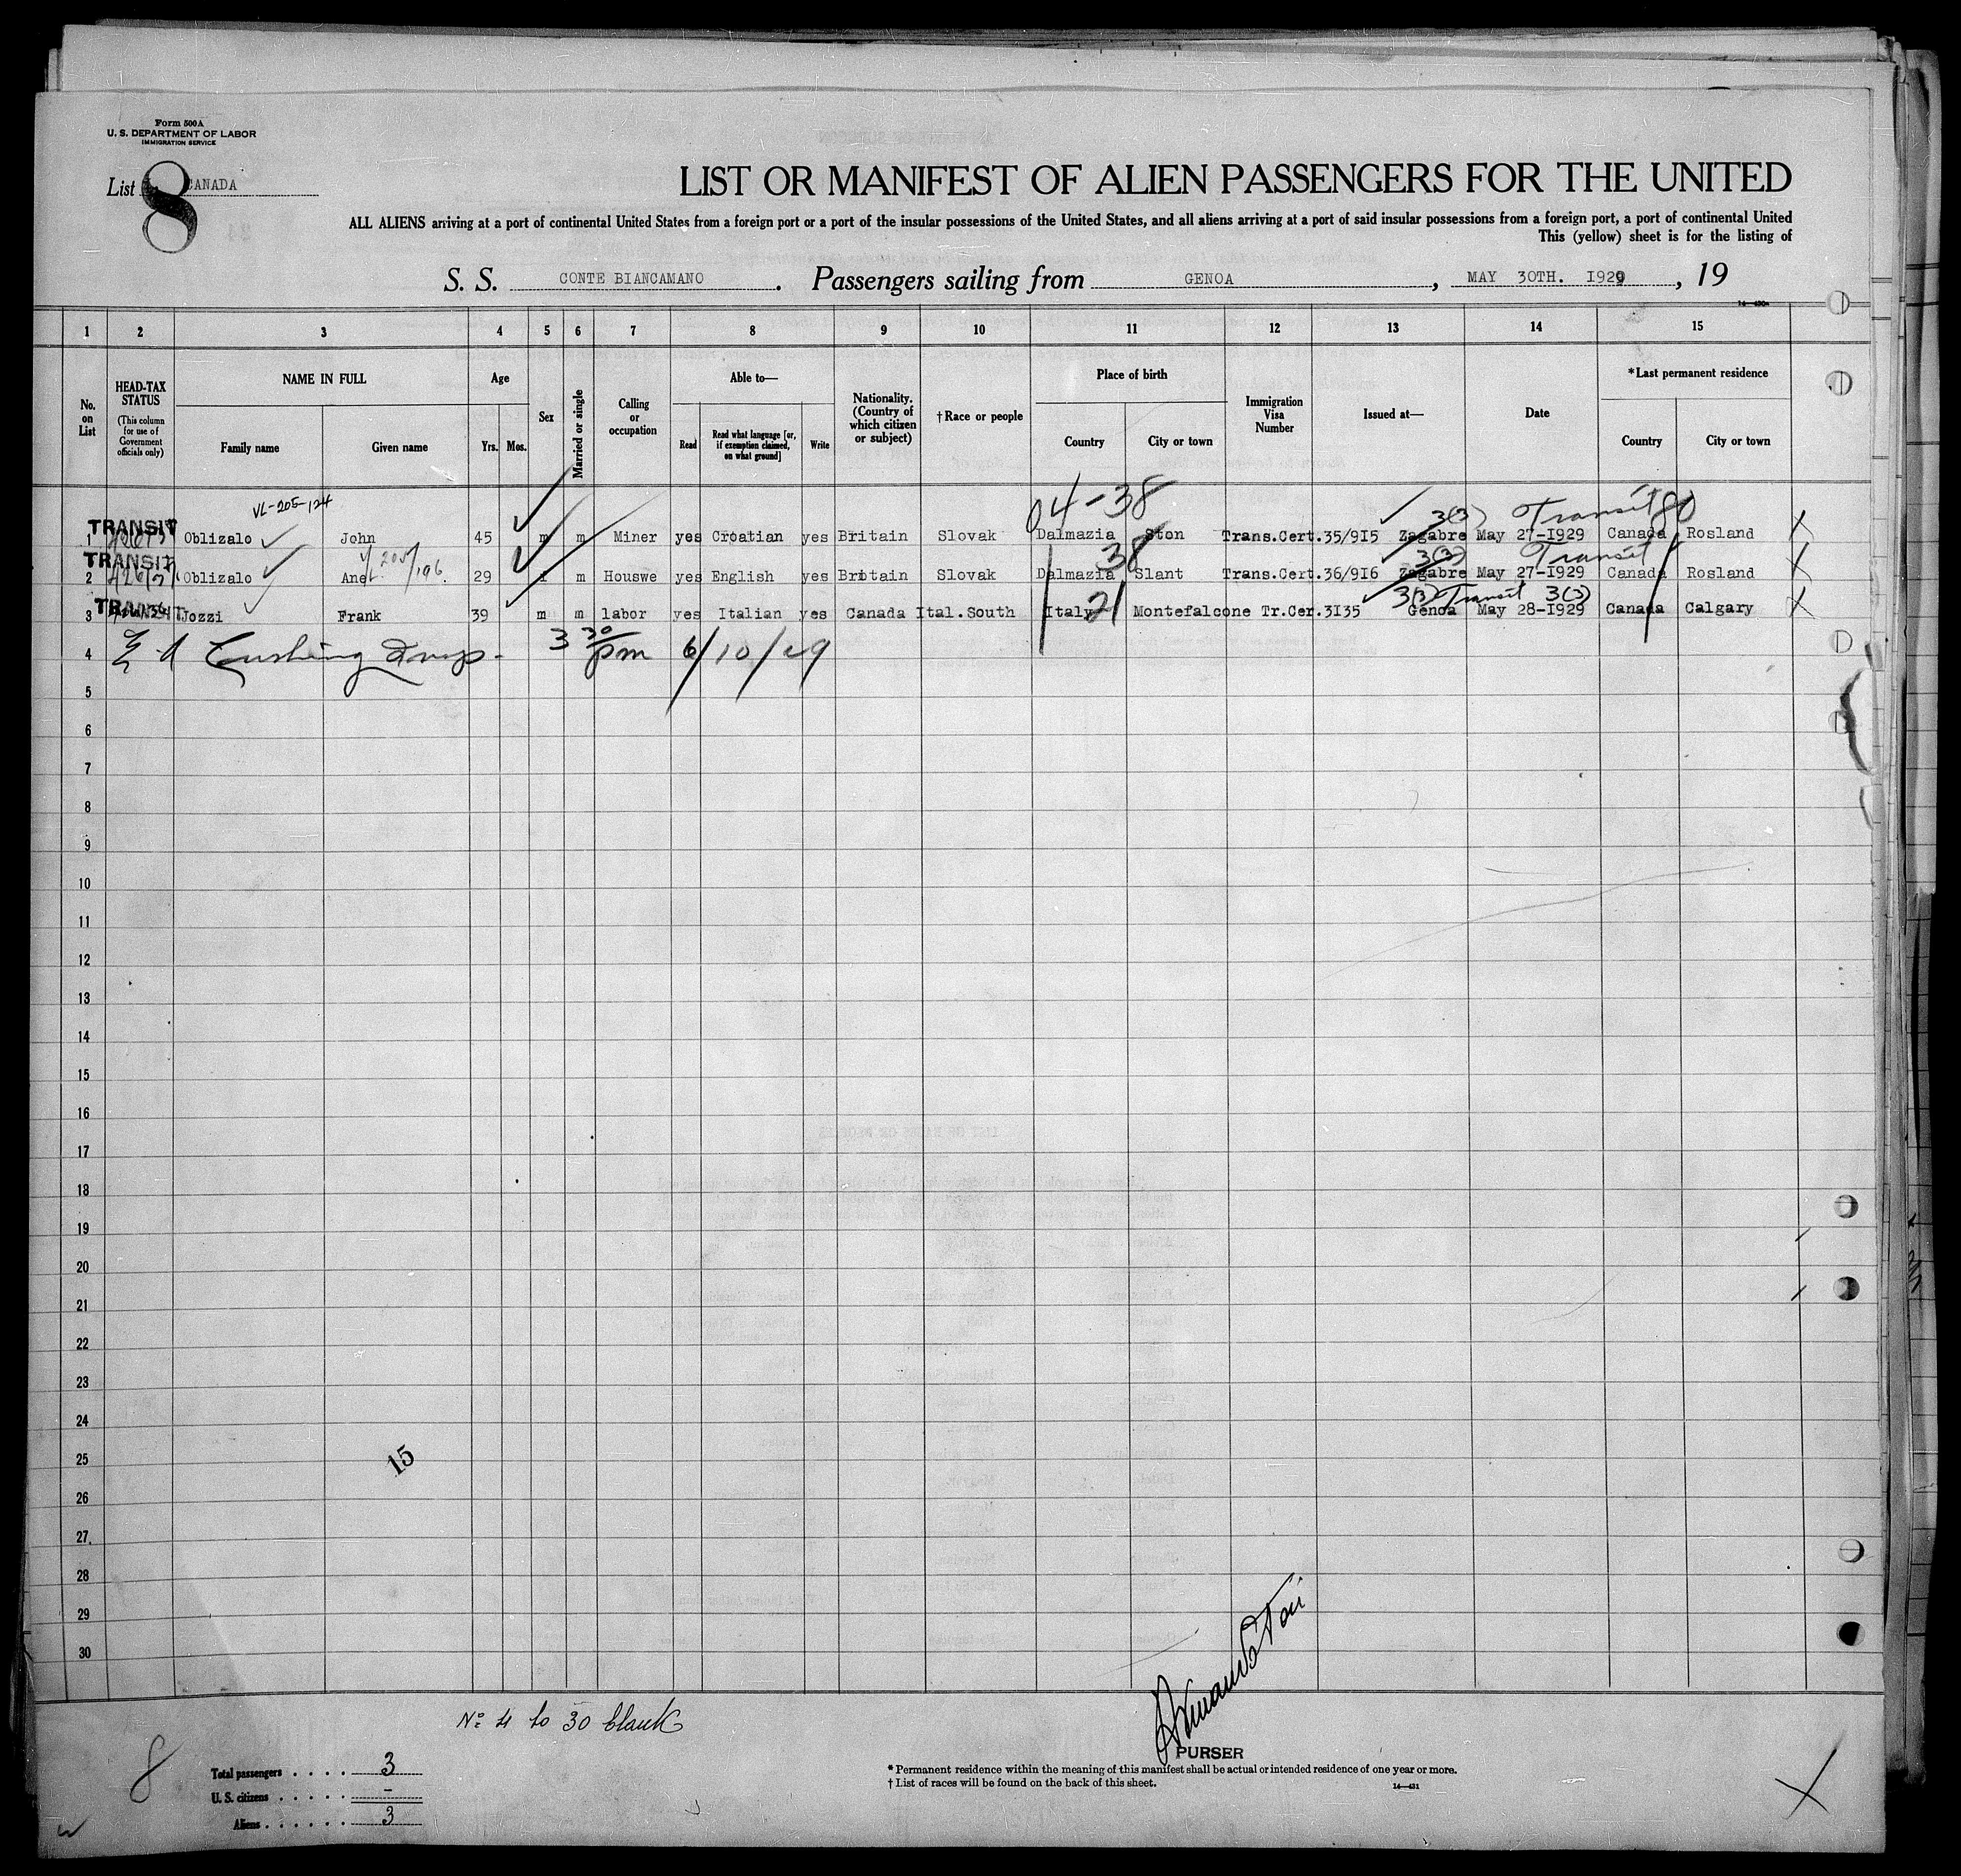 Form 500A
U. S. DEPARTMENT OF LABOR
IMMIGRATION SERVICE
List 8 CANADA
LIST OR MANIFEST OF ALIEN PASSENGERS FOR THE UNITED
ALL ALIENS arriving at a port of continental United States from a foreign port or a port of the insular possessions of the United States, and all aliens arriving at a port of said insular possessions from a foreign port, a port of continental United
This (yellow) sheet is for the listing of
S. S. CONTE BIANCAMANO. Passengers sailing from GENOA, MAY 30TH. 1929, 19
1 2 3 4 5 6 7 8 9 10 11 12 13 14 15
No. on List
HEAD-TAX STATUS (This column for use of Government officials only)
NAME IN FULL
Family name
Given name
Age
Yrs. Mos.
Sex
Married or single
Calling or occupation
Able to—
Read
Read what language [or, if exemption claimed, on what ground]
Write
Nationality. (Country of which citizen or subject)
†Race or people
Place of birth
Country
City or town
Immigration Visa Number
Issued at—
Date
*Last permanent residence
Country
City or town
VL-205-124
04-38
3(3) Transit
TRANSIT
1 Oblizalo John 45 m m Miner yes Croatian yes Britain Slovak Dalmazia Ston Trans.Cert.35/9I5 Zagabre May 27-I929 Canada Rosland
205/196
38
3(3) Transit
TRANSIT
2 Oblizalo Anet 29 f m Houswe yes English yes Britain Slovak Dalmazia Slant Trans.Cert.36/9I6 Zagabre May 27-I929 Canada Rosland
21
3(3) Transit 3(3)
TRANSIT
3 Jozzi Frank 39 m m labor yes Italian yes Canada Ital.South Italy Montefalcone Tr.Cer.3I35 Genoa May 28-I929 Canada Calgary
4 Cushing Insp. 3 30 pm 6/10/29
5
6
7
8
9
10
11
12
13
14
15
16
17
18
19
20
21
22
23
24
25
15
26
27
28
29
30
Nº 4 to 30 blank
8
PURSER
Total passengers . . . . . 3
U. S. citizens . . . . . –
Aliens . . . . . . 3
* Permanent residence within the meaning of this manifest shall be actual or intended residence of one year or more.
† List of races will be found on the back of this sheet.
14—431